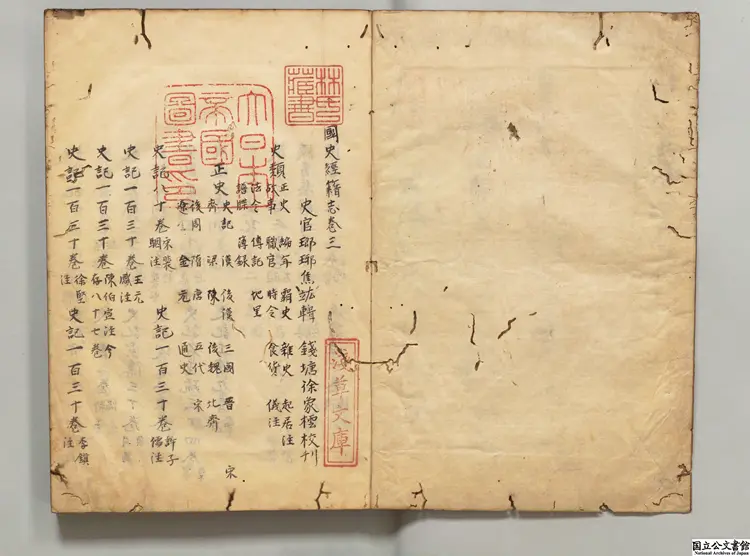 國史經籍志卷三
史官瑯琊焦竑輯 錢塘徐家橒校刊
史類 正史 編年 霸史 雜史 起居注
故事 職官 時令 食貨 儀注
法令 傳記 地里
譜牒 簿錄
正史 史記 漢 後漢 三國 晉 宋
齊 梁 陳 後魏 北齊
後周 隋 唐 五代 宋
遼 金 元 通史
史記八十卷 宋裴駰注 史記一百三十卷
史記一百三十卷 王元感注
史記一百三十卷 陳伯宣注今存八十七卷
史記一百三十卷 徐堅注 史記一百三十卷 李鎮注
林氏藏書
大日本帝國圖書印
淺草文庫
国立公文書館
National Archives of Japan